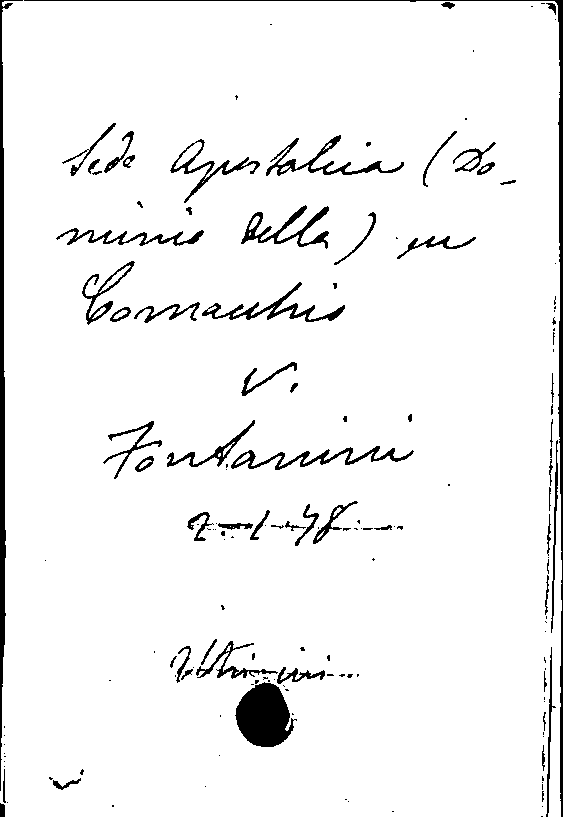 Sede Apostolica (Do-
minio della) in
Comacchio
v.
Fontanini
2.-1-48